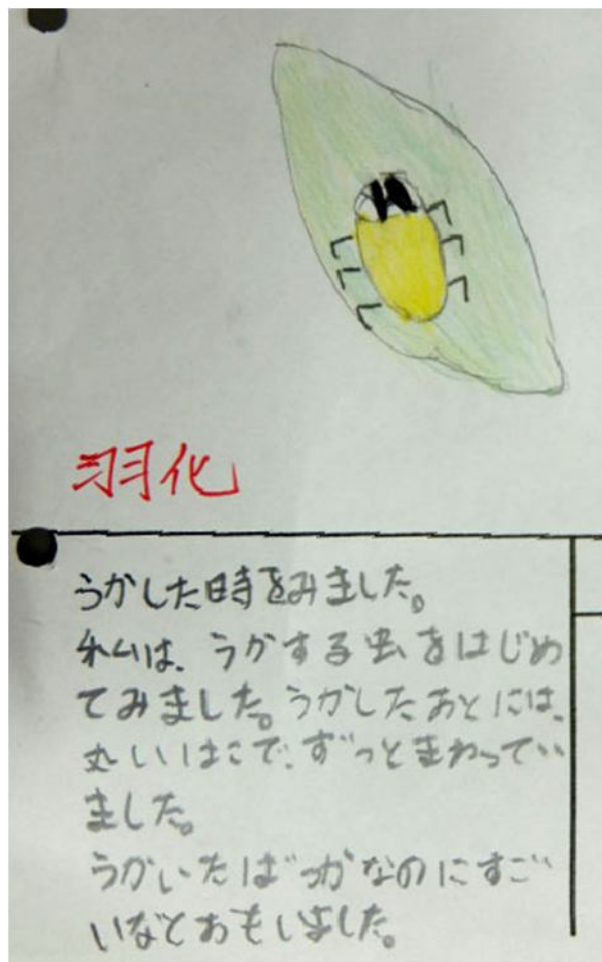 羽化
うかした時をみました。
私は、うかする虫をはじめ
てみました。うかしたあとには、
丸いはこで、ずっとまわってい
ました。
うかいたばっかなのにすご
いなとおもいました。